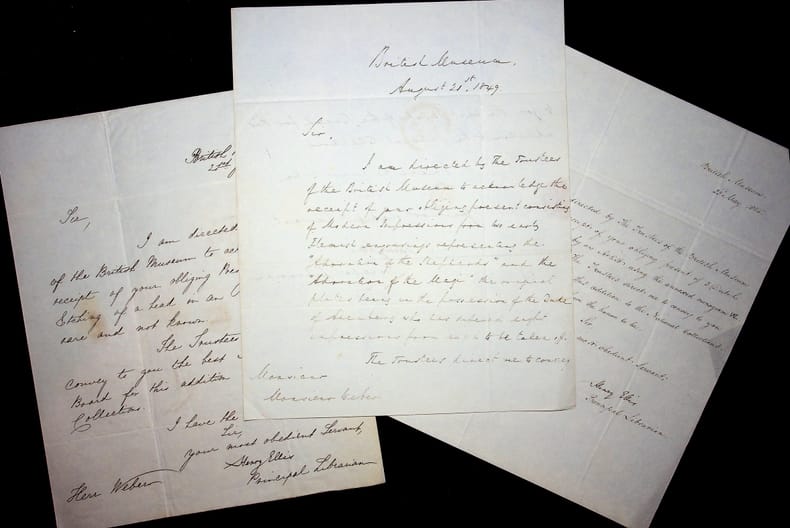 British Museum.
August 21st. 1849.
Sir,
I am directed by the Trustees
of the British Museum to acknowledge the
receipt of your obliging present consisting
of Modern Impressions from two early
Flemish engravings representing the
"Adoration of the Shepherds" and the
"Adoration of the Magi" the original
plates being in the possession of the Duke
of who has ordered
impressions from each to be taken off.
The Trustees direct me to convey
Monsieur
Monsieur Weber
British
22nd
Sir,
I am directed
of the British Museum to
receipt of your obliging
Etching of a head on an
rare and not known.
The Trustees
convey to you the best
Board for this addition
Collection.
I have the
Sir,
your most obedient Servant,
Henry Ellis
Principal Librarian
Herr Weber
British Museum
May
directed by the Trustees of the British Museum
of your obliging present of
by an artist using the
The Trustees direct me to convey to you
this addition to the National Collection.
the honor to be,
Sir
most obedient Servant,
Henry Ellis
Principal Librarian